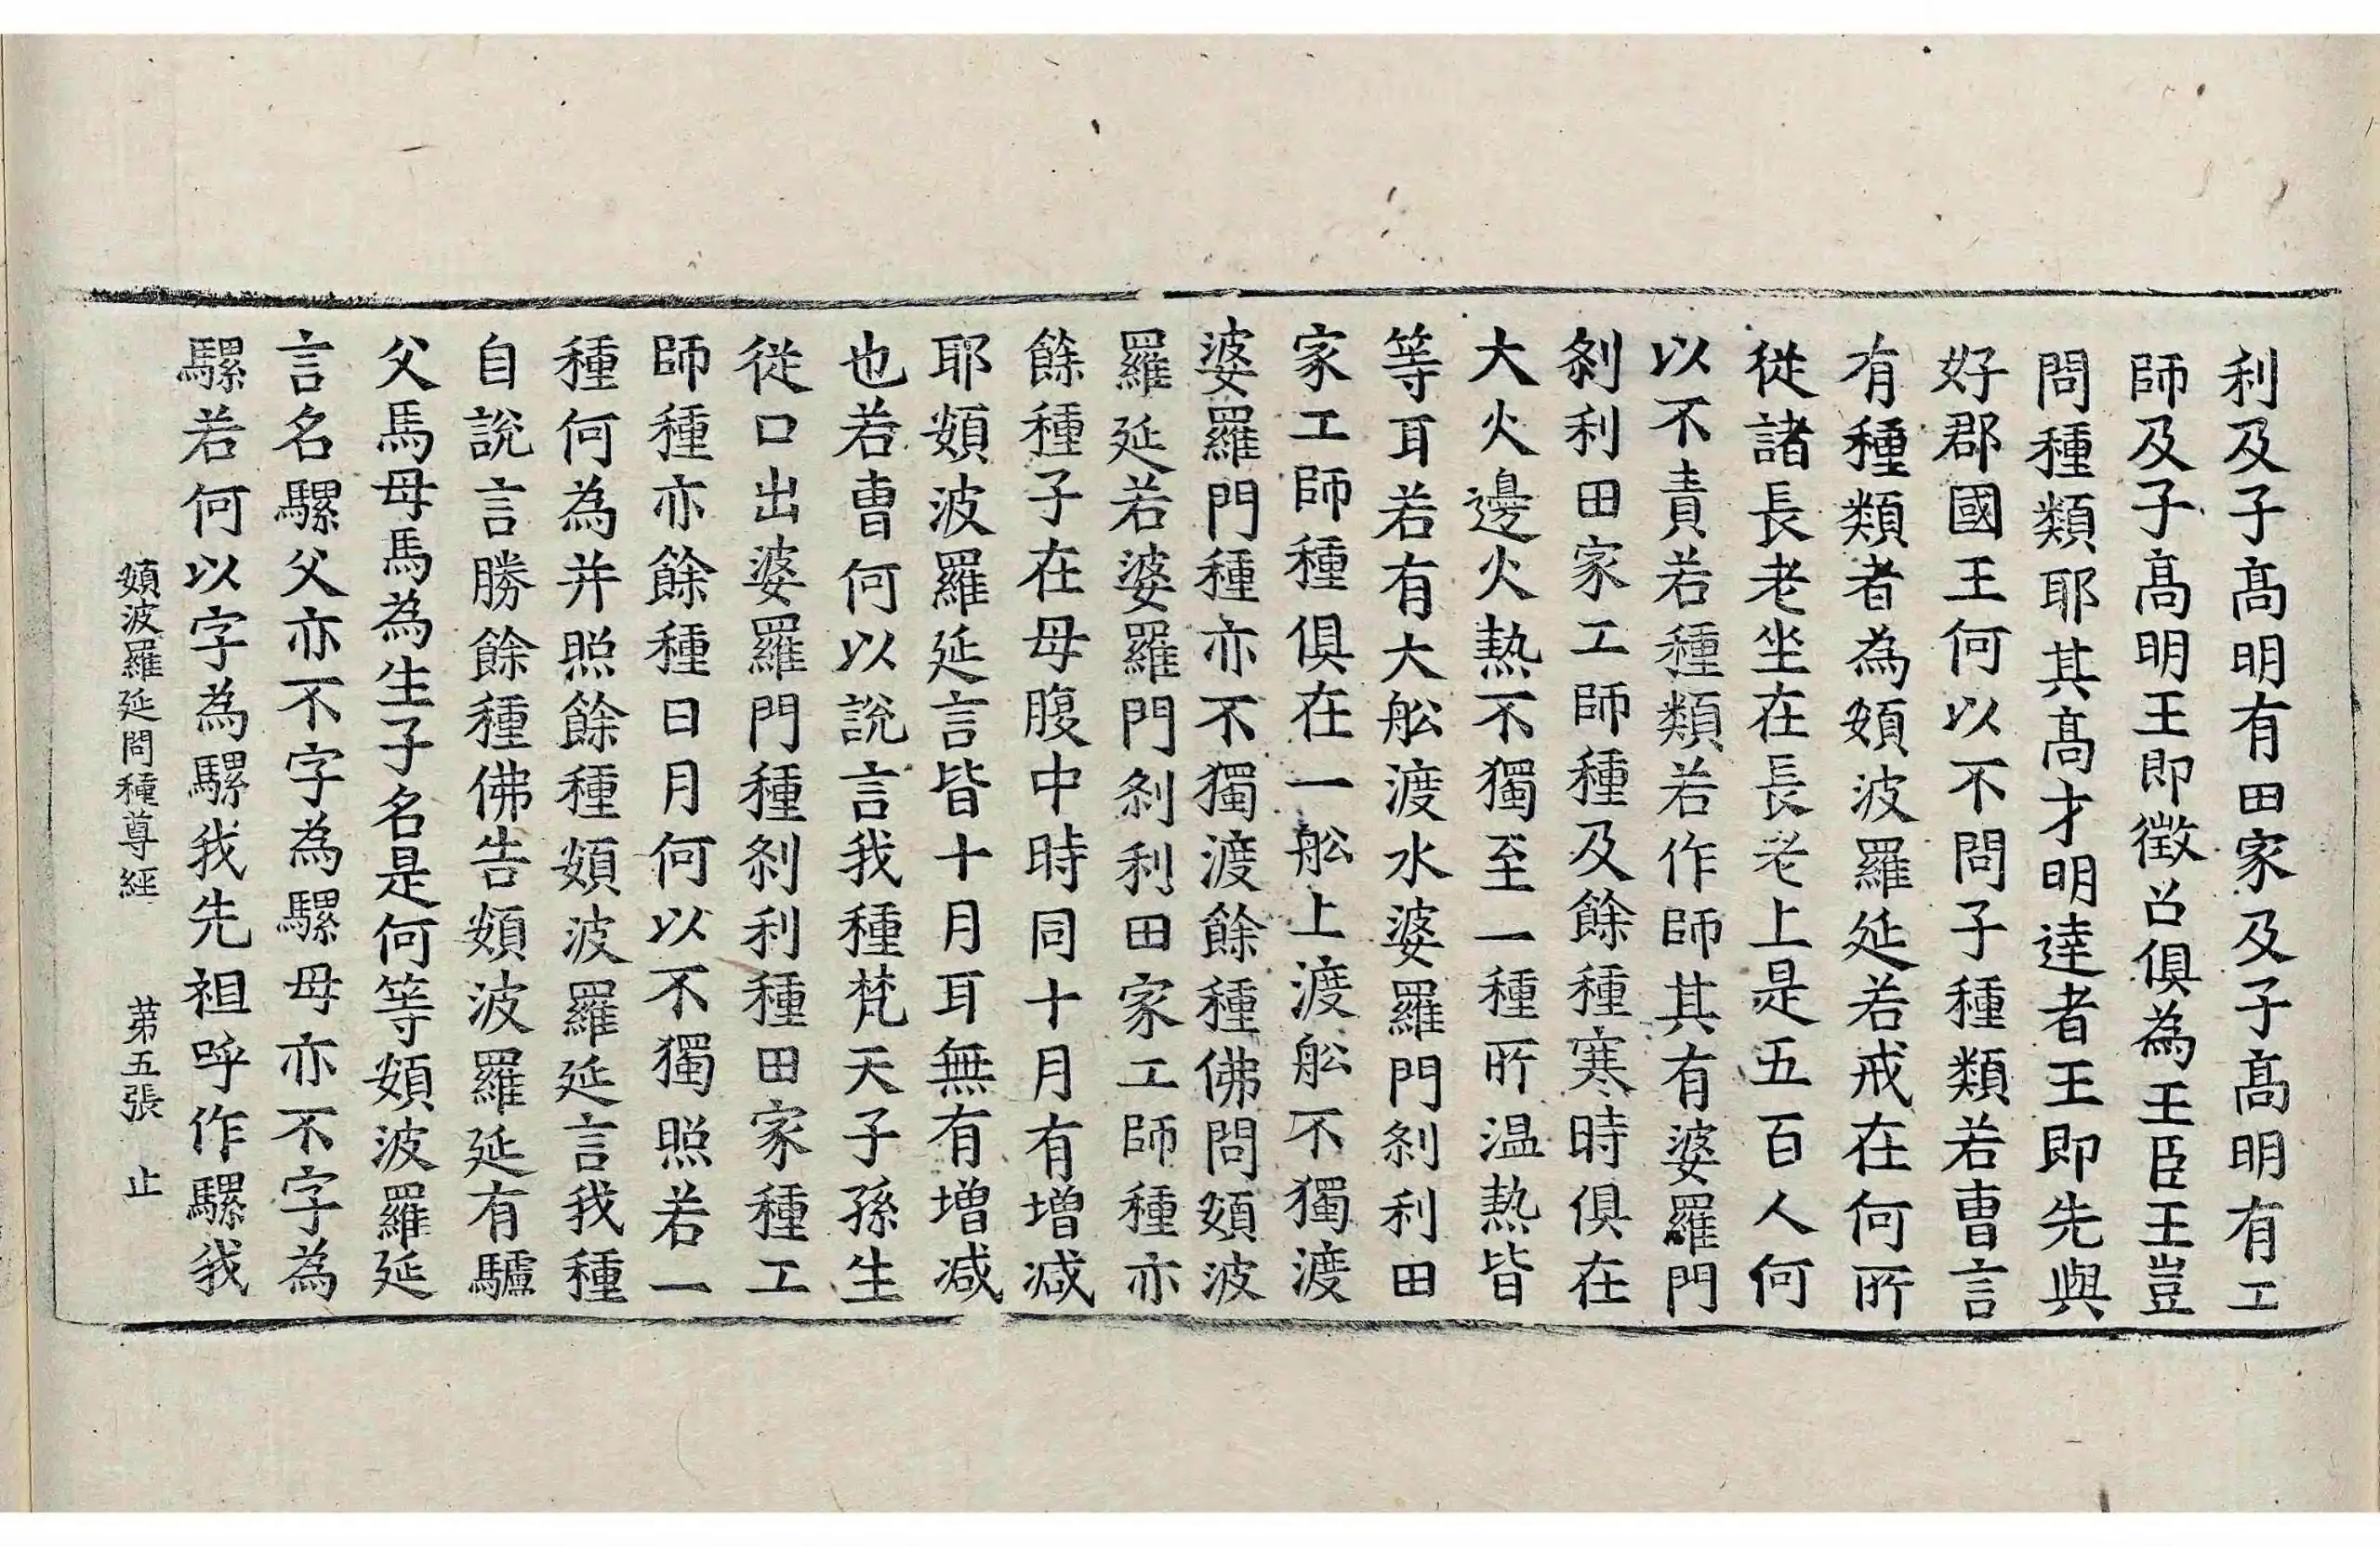 利及子髙明有田家及子髙明有工
師及子髙明王即徵召俱為王臣王豈
問種類耶其髙才明達者王即先與
好郡國王何以不問子種類若曹言
有種類者為頞波羅延若戒在何所
從諸長老坐在長老上是五百人何
以不責若種類若作師其有婆羅門
刹利田家工師種及餘種寒時俱在
大火邊火熱不獨至一種所温熱皆
等耳若有大舩渡水婆羅門刹利田
家工師種俱在一舩上渡舩不獨渡
婆羅門種亦不獨渡餘種佛問頞波
羅延若婆羅門刹利田家工師種亦
餘種子在母腹中時同十月有増减
耶頞波羅延言皆十月耳無有増减
也若曹何以說言我種梵天子孫生
從口出婆羅門種刹利種田家種工
師種亦餘種日月何以不獨照若一
種何為并照餘種頞波羅延言我種
自說言勝餘種佛告頞波羅延有驢
父馬母馬為生子名是何等頞波羅延
言名騾父亦不字為騾母亦不字為
騾若何以字為騾我先祖呼作騾我
頞波羅延問種尊經 苐五張 止